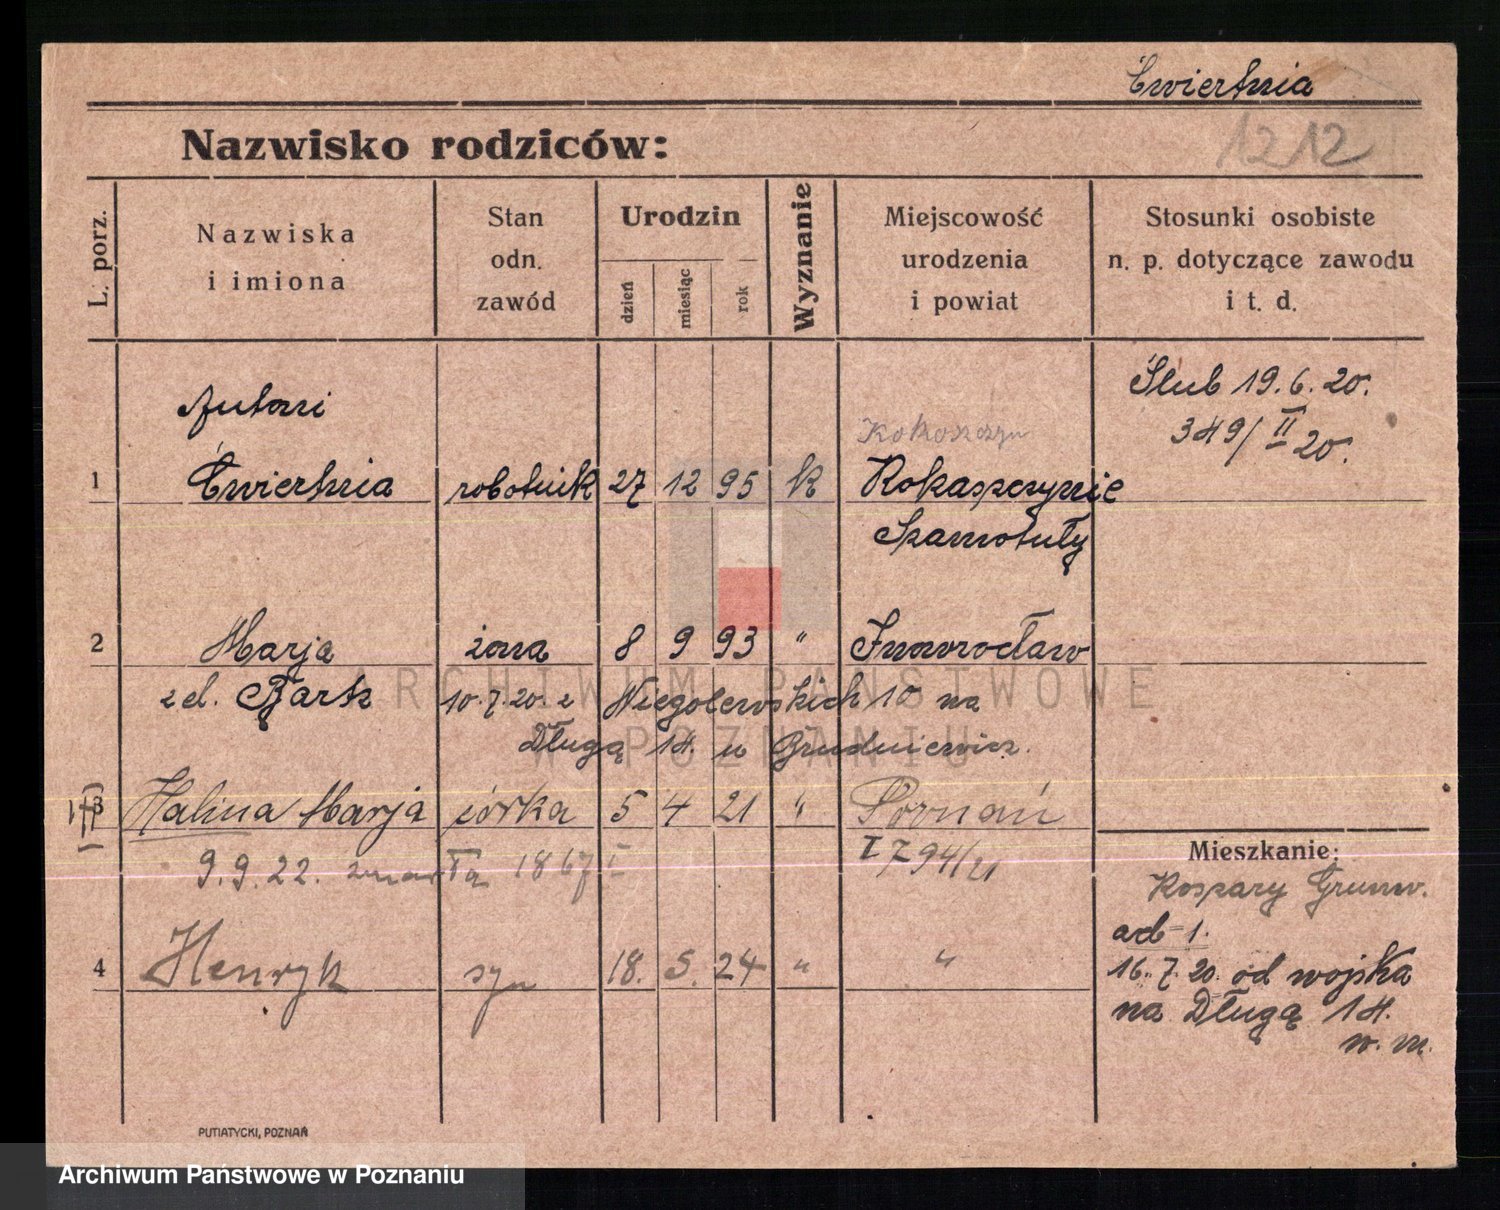 Ćwiertnia
Nazwisko rodziców:
1212
L. porz.
Nazwiska
i imiona
Stan
odn.
zawód
Urodzin
dzień
miesiąc
rok
Wyznanie
Miejscowość
urodzenia
i powiat
Stosunki osobiste
n. p. dotyczące zawodu
i t. d.
Ślub 19.6.20.
349/II 20.
Antoni
Kokoszczyn
1 Ćwiertnia robotnik 27 12 95 k Kokaszczynie
Szamotuły
2 Marja żona 8 9 93 " Inowrocław
z d. Bartz 10.7.20. z Niegolewskich 10 na
Długą 14. u Grudniewicz.
3 Halina Marja córka 5 4 21 " Poznań
9.9.22. zmarła 1867 I I 794/21
4 Henryk syn 18. 5. 24 " "
Mieszkanie:
Koszary Grunw.
arb 1.
16.7.20. od wojska
na Długą 14.
w. m.
PUTIATYCKI, POZNAŃ
ARCHIWUM PAŃSTWOWE
W POZNANIU
Archiwum Państwowe w Poznaniu